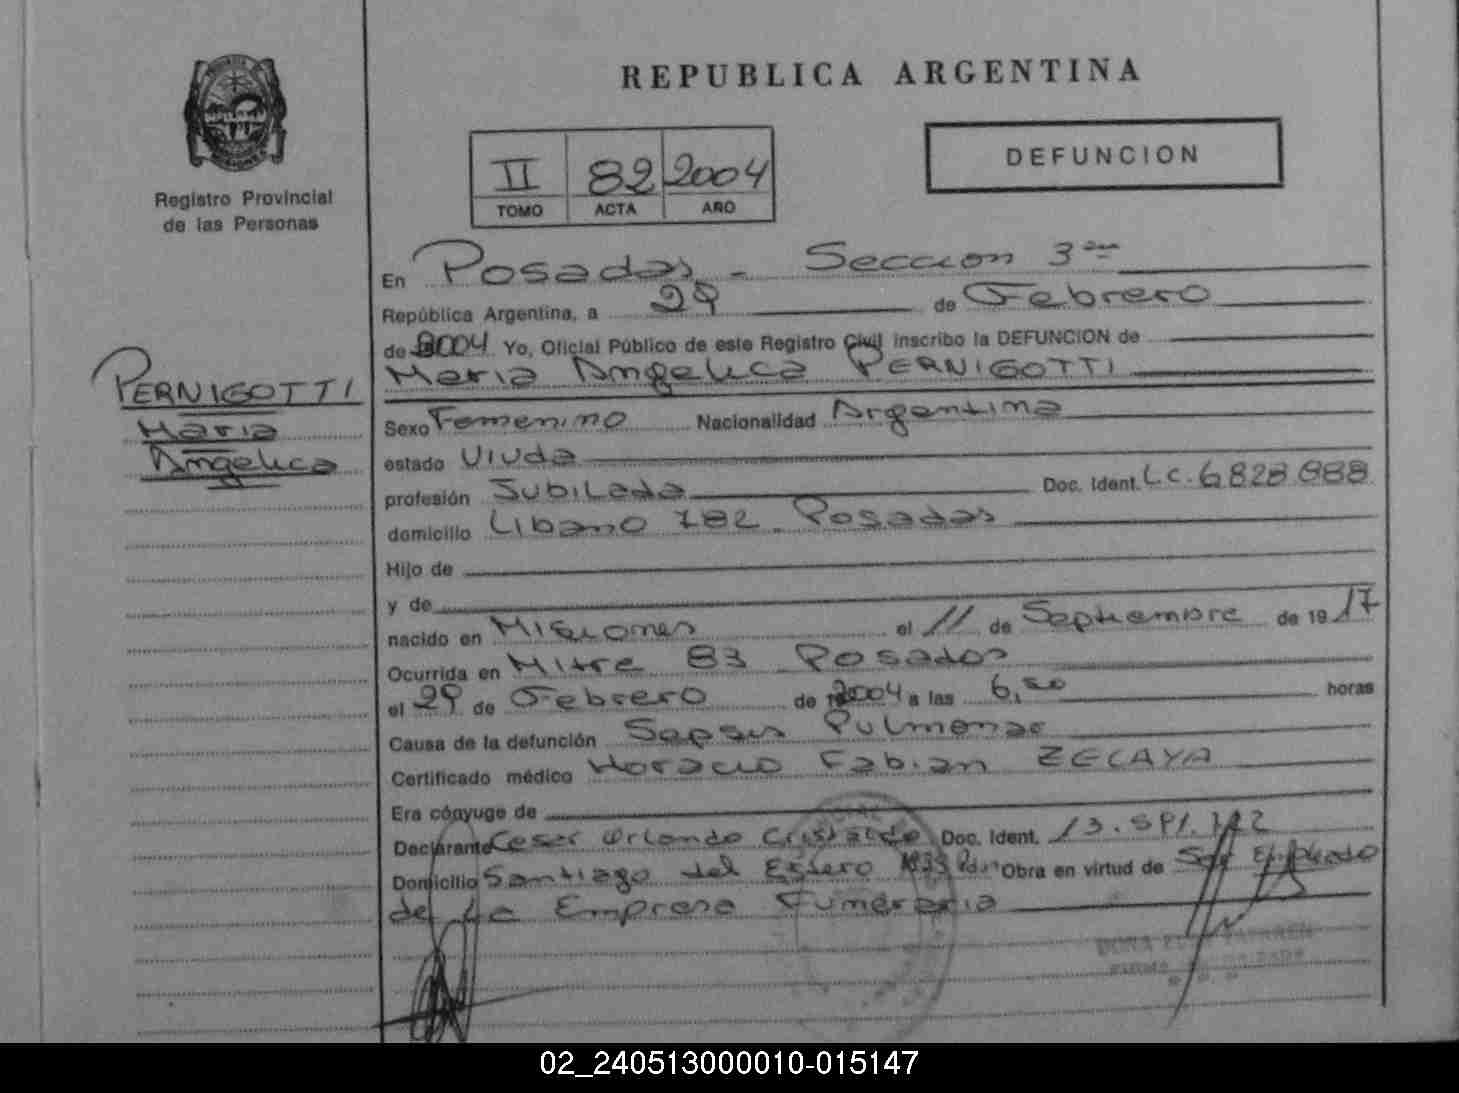 REPUBLICA ARGENTINA
DEFUNCION
II 82 2004
TOMO ACTA AÑO
Registro Provincial
de las Personas
En Posadas - Seccion 3ra
República Argentina, a 29 de Febrero
de 2004 Yo, Oficial Público de este Registro Civil inscribo la DEFUNCION de
Maria Angelica PERNIGOTTI
PERNIGOTTI
Maria
Angelica
Sexo Femenino Nacionalidad Argentina
estado Viuda
profesión Jubilada Doc. Ident. L.C. 6.828.888
domicilio Libano 782 Posadas
Hijo de
y de
nacido en Misiones el 11 de Septiembre de 1917
Ocurrida en Mitre 83 Posadas
el 29 de Febrero de 2004 a las 6,50 horas
Causa de la defunción Sepsis Pulmonar
Certificado médico Horacio Fabian ZECAYA
Era cónyuge de
Declarante Cesar Orlando Cristaldo Doc. Ident. 13.
Domicilio Santiago del Estero Obra en virtud de Ser Empleado
de La Empresa Funeraria
02_240513000010-015147